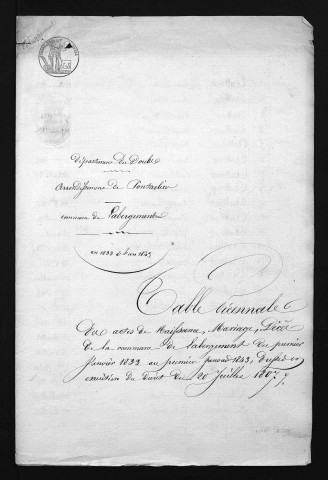 Département du Doubs
Arrondissement de Pontarlier
commune de Labergement
an 1833 à l'an 1843
Table décennale
Des actes de Naissance, Mariage, Décès
De la commune de Labergement du premier
Janvier 1833 au premier janvier 1843, dressée en
exécution du décret du 20 Juillet 1807